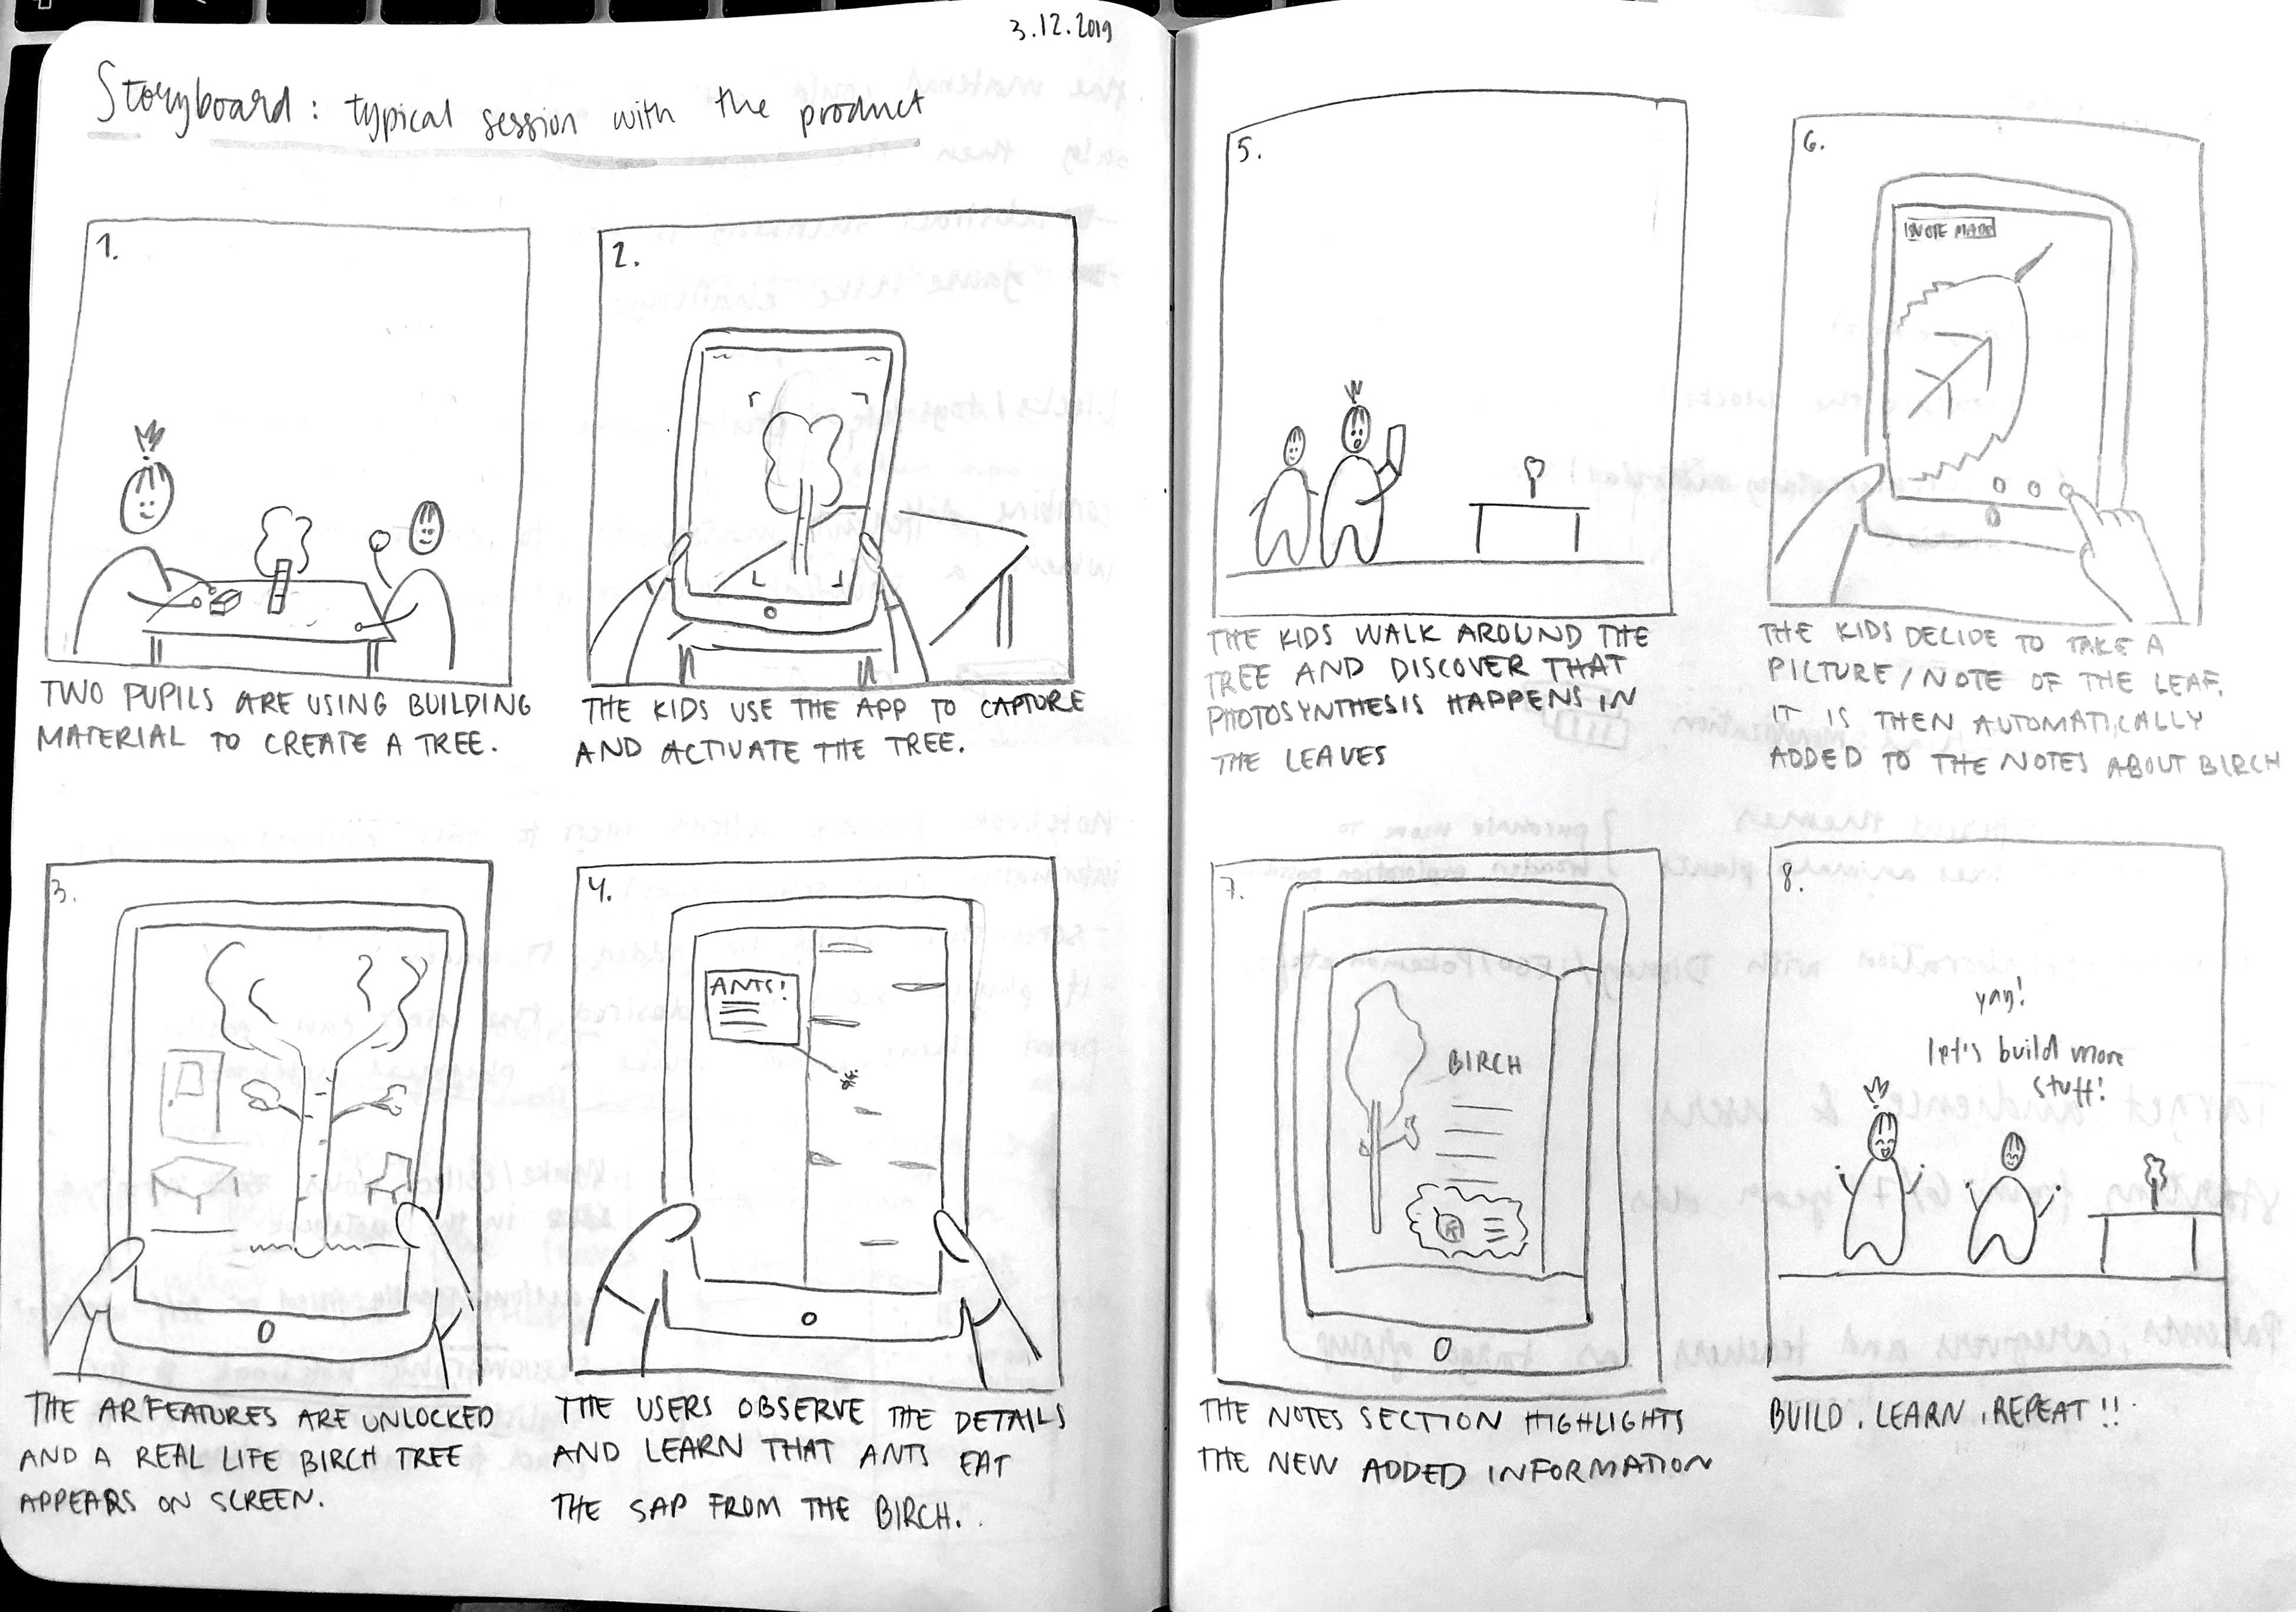 3.12.2019
Storyboard: typical session with the product
1.
TWO PUPILS ARE USING BUILDING
MATERIAL TO CREATE A TREE.
2.
THE KIDS USE THE APP TO CAPTURE
AND ACTIVATE THE TREE.
3.
THE AR FEATURES ARE UNLOCKED
AND A REAL LIFE BIRCH TREE
APPEARS ON SCREEN.
4.
ANTS!
THE USERS OBSERVE THE DETAILS
AND LEARN THAT ANTS EAT
THE SAP FROM THE BIRCH.
5.
THE KIDS WALK AROUND THE
TREE AND DISCOVER THAT
PHOTOSYNTHESIS HAPPENS IN
THE LEAVES
6.
NOTE MADE
THE KIDS DECIDE TO TAKE A
PICTURE/NOTE OF THE LEAF.
IT IS THEN AUTOMATICALLY
ADDED TO THE NOTES ABOUT BIRCH
7.
BIRCH
THE NOTES SECTION HIGHLIGHTS
THE NEW ADDED INFORMATION
8.
yay!
let's build more
stuff!
BUILD. LEARN. REPEAT!!